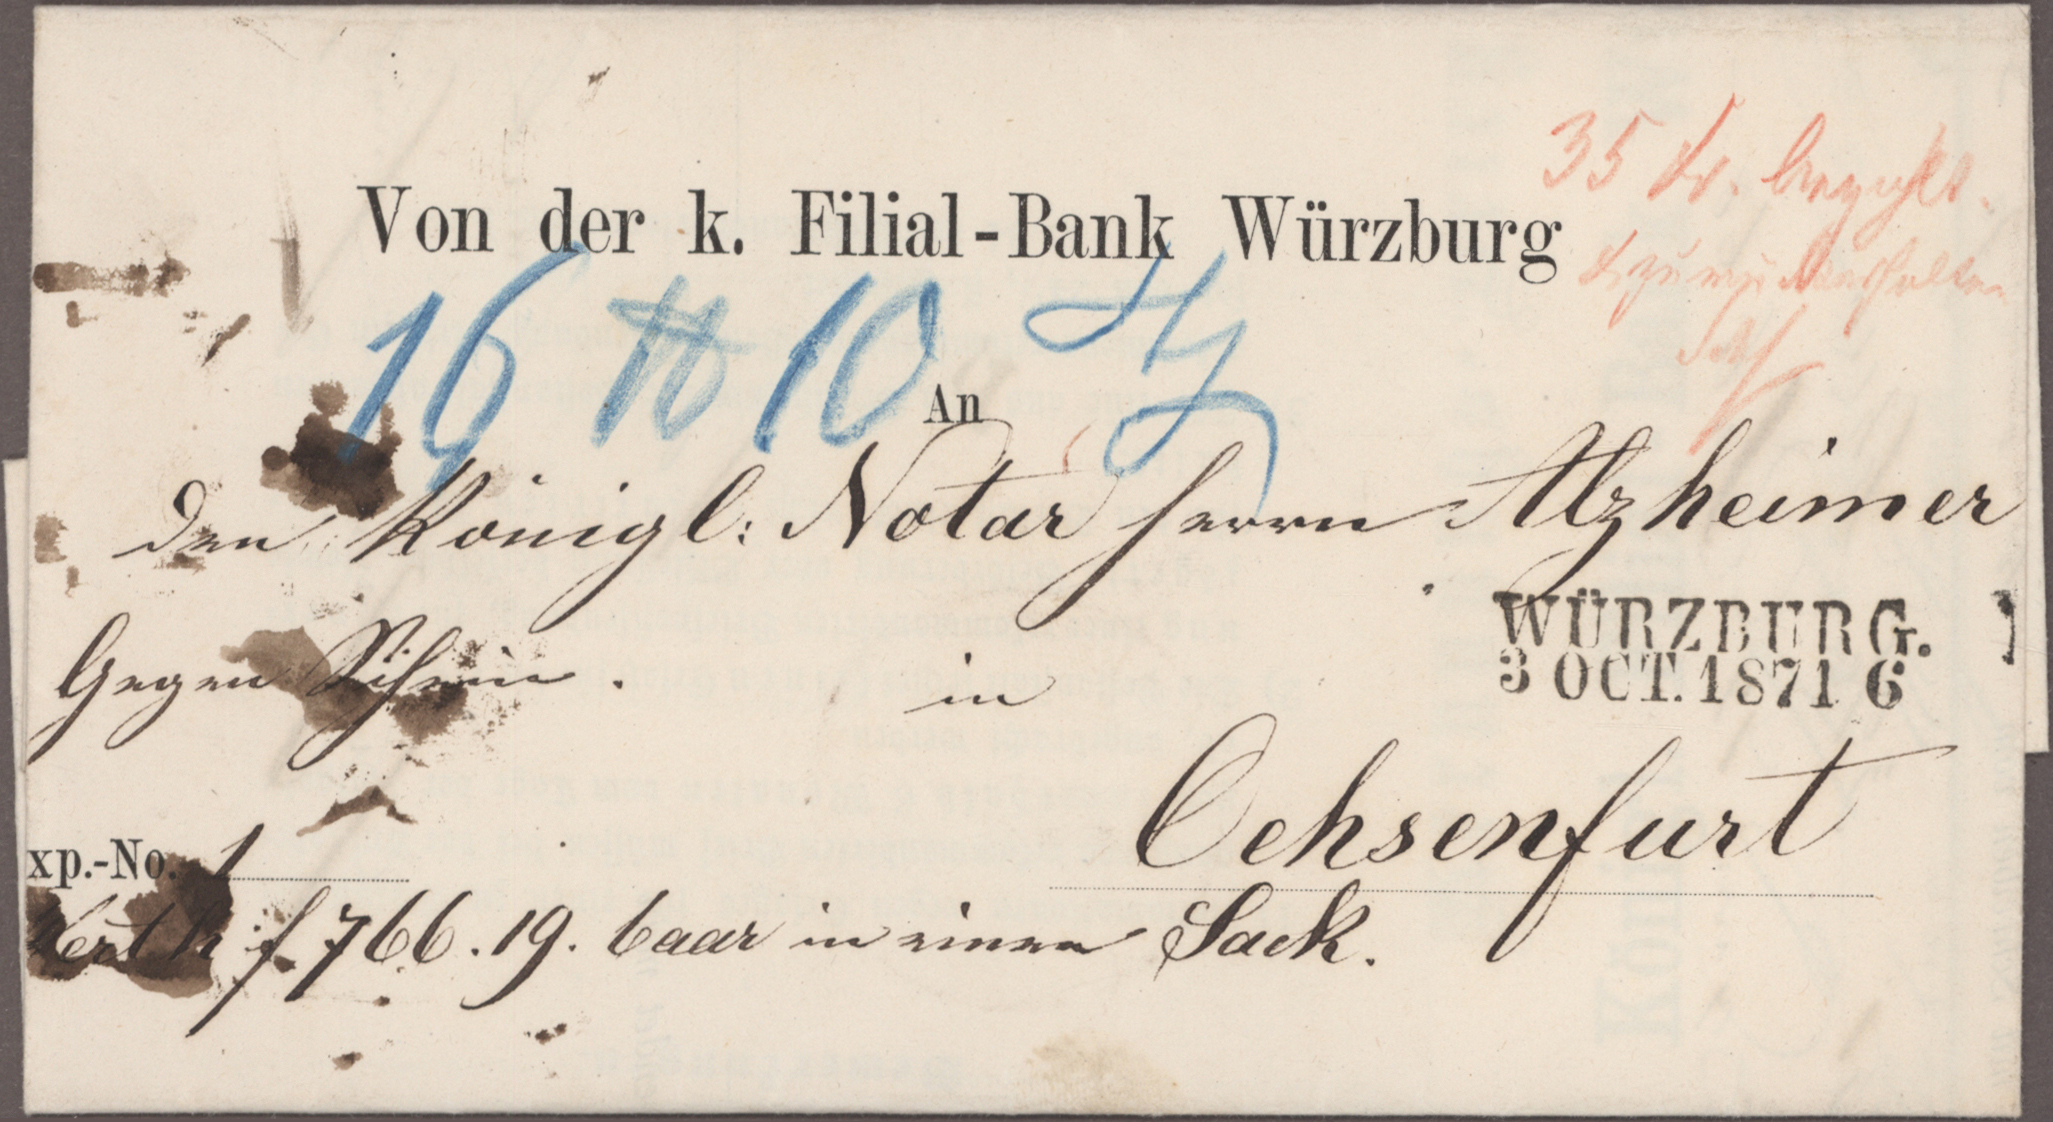 35 kr. bezahlt.
Von der k. Filial-Bank Würzburg
16 ℔ 10
An
den Königl: Notar Herrn Alzheimer
WÜRZBURG.
3 OCT. 1871 6
Gegen Schein.
in
Ochsenfurt
xp.-No. 1
Werth f 766.19. baar in einem Sack.